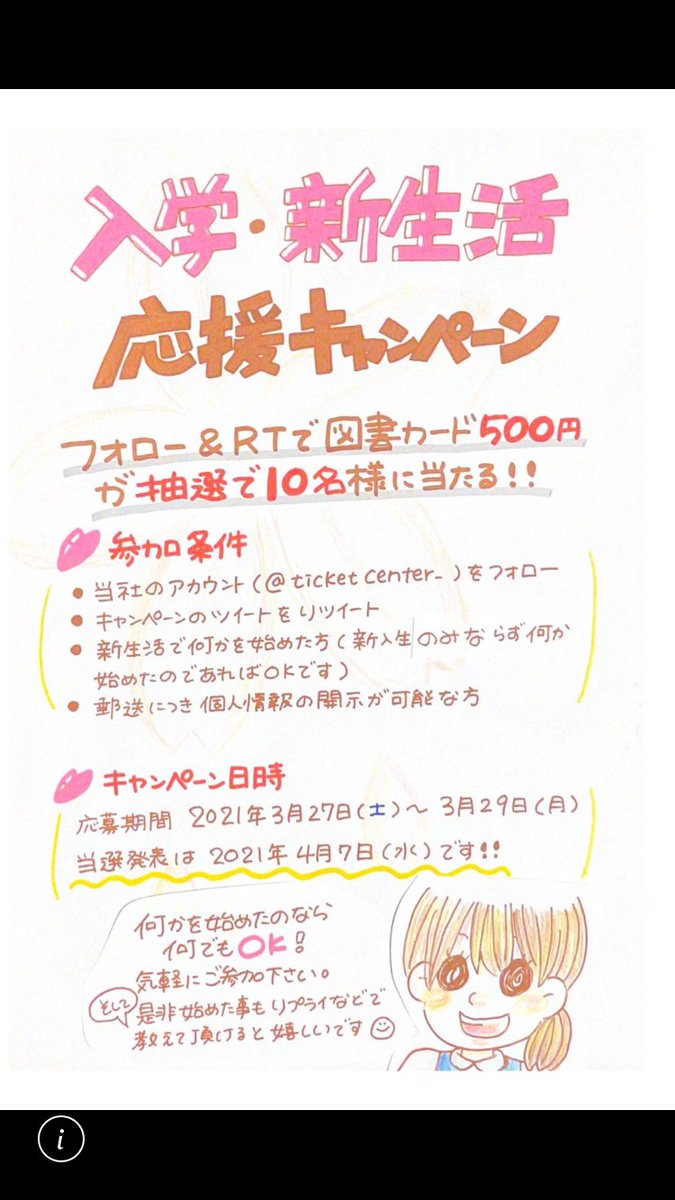 入学・新生活
応援キャンペーン
フォロー&RTで図書カード500円
が抽選で10名様に当たる!!
参加条件
● 当社のアカウント(@ticketcenter_)をフォロー
● キャンペーンのツイートをリツイート
● 新生活で何かを始めた方(新入生のみならず何か
始めたのであればOKです)
● 郵送につき個人情報の開示が可能な方
キャンペーン日時
応募期間 2021年3月27日(土)~3月29日(月)
当選発表は 2021年4月7日(水)です!!
何かを始めたのなら
何でもOK!
気軽にご参加下さい。
そして
是非始めた事もリプライなどで
教えて頂けると嬉しいです
i